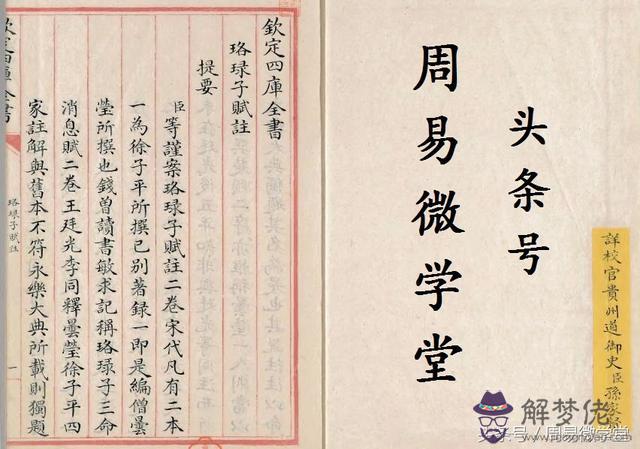 欽定四庫全書
珞琭子賦註
提要
臣等謹案珞琭子賦註二卷宋代凡有二本
一為徐子平所撰已别著録一即是編僧曇
瑩所撰也錢曽讀書敏求記稱珞琭子三命
消息賦二卷王廷光李同釋曇瑩徐子平四
家註解與舊本不符永樂大典所載則獨題
珞琭子賦註
一
欽定四庫全書
头条号
周易微学堂
詳校官貴州道御史臣孫
解梦佬
头条号/周易微学堂